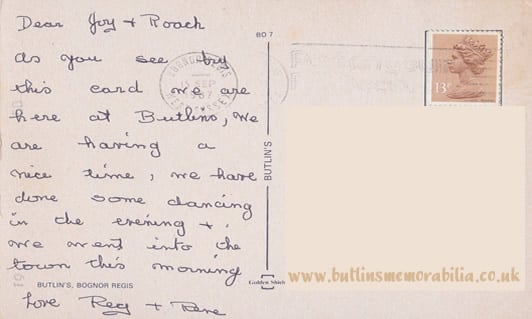 Dear Joy + Roach
as you see by
this card we are
here at Butlins, we
are having a
nice time, we have
done some dancing
in the evening +
we went into the
town this morning
BUTLIN'S, BOGNOR REGIS
Love Reg +
BO 7
BUTLIN'S
Golden Shield
BOGNOR REGIS
SEP
1987
WEST SUSSEX
13P
www.butlinsmemorabilia.co.uk